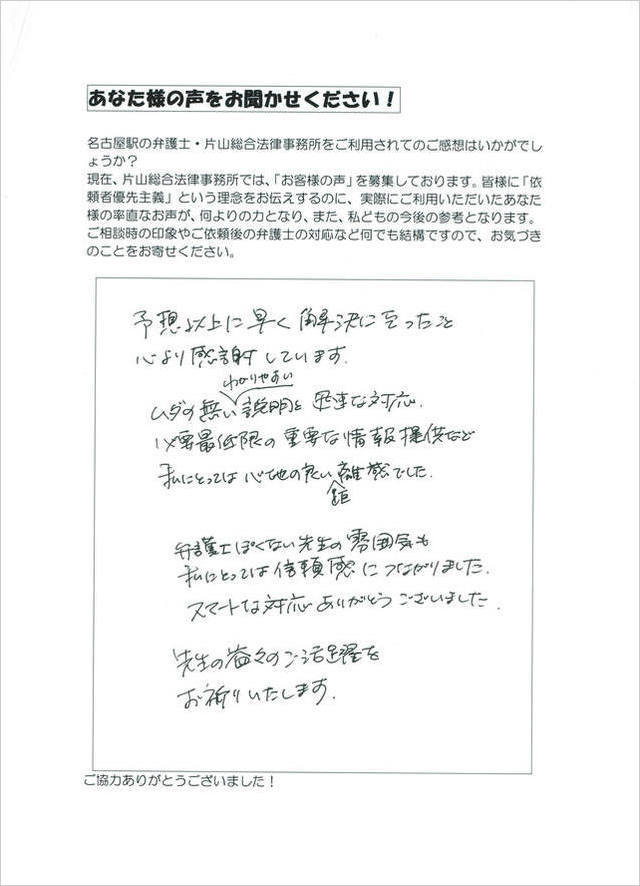 あなた様の声をお聞かせください！
名古屋駅の弁護士・片山総合法律事務所をご利用されてのご感想はいかがでし
ょうか？
現在、片山総合法律事務所では、「お客様の声」を募集しております。皆様に「依
頼者優先主義」という理念をお伝えするのに、実際にご利用いただいたあなた
様の率直なお声が、何よりの力となり、また、私どもの今後の参考となります。
ご相談時の印象やご依頼後の弁護士の対応など何でも結構ですので、お気づき
のことをお寄せください。
予想以上に早く解決に至ったこと
心より感謝しています.
わかりやすい
ムダの無い説明と迅速な対応.
必要最低限の重要な情報提供など
私にとっては心地の良い離感でした.
距
弁護士ぽくない先生の雰囲気も
私にとっては信頼感につながりました.
スマートな対応ありがとうございました.
先生の益々のご活躍を
お祈りいたします.
ご協力ありがとうございました！